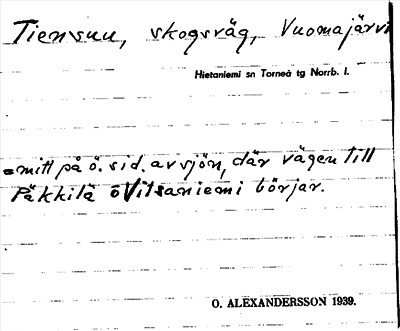 Tiensuu, skogsväg, Vuomajärvi
Hietaniemi sn Torneå tg Norrb. l.
=mitt på ö. sid. av sjön, där vägen till
Päkkilä o Vitsaniemi börjar.
O. ALEXANDERSSON 1939.